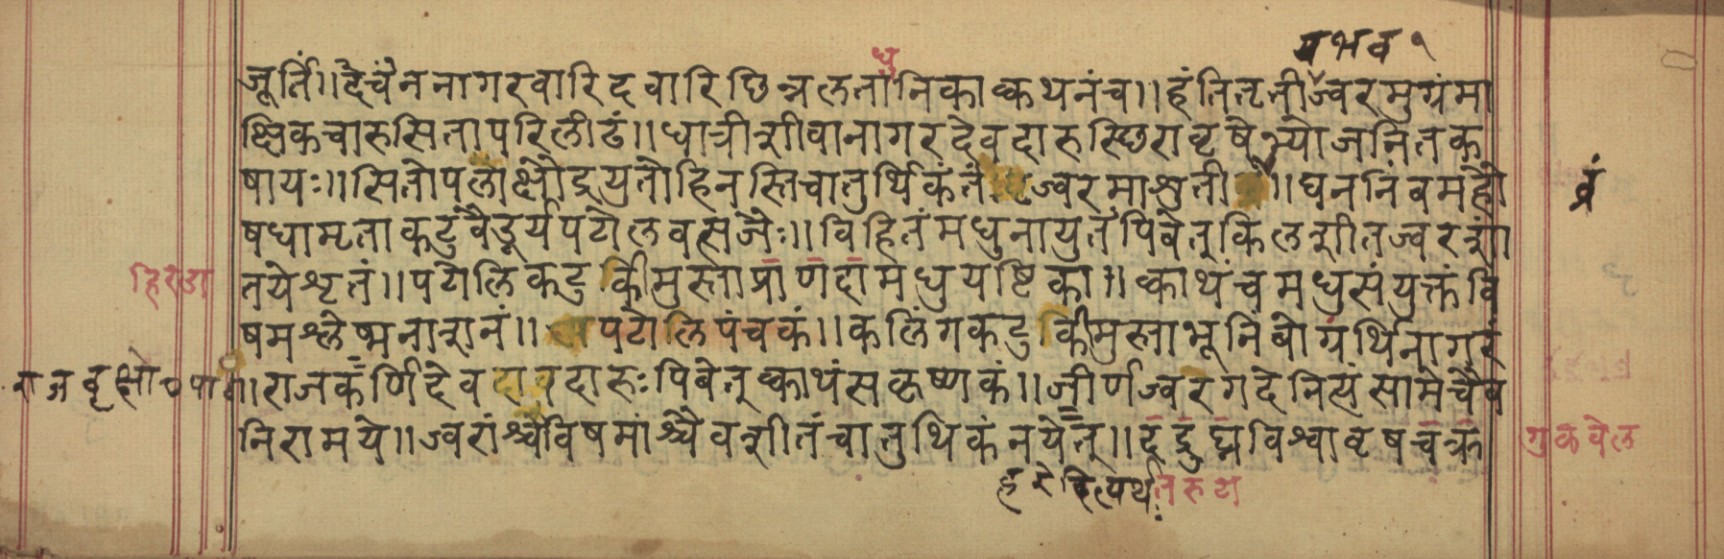 यभव १
जूर्तिं।। दैचैन नागरवारिदवारिछिन्नलतानिकाक्वथनंच।। हंतितृतीज्वरमुग्रंमा
धु
क्षिकचारुसितापरिलीढं।। धात्रीशीवानागरदेवदारुस्थिरावृषैश्योजनितक
षायः।। सितोपलाक्षौद्रयुतोहिनस्तिचातुर्थिकंतं ज्वरमाशुती ।। घननिंबमहौ
षधामृताकटुवैडूर्यपटोलवत्सजैः।। विहितंमधुनायुतंपिबेत्किलशीतज्वरशां
तयेशृतं।। पटोलिकटुकीमुस्ताप्राणदामधुयष्टिका।। क्वाथंचमधुसंयुक्तंवि
हिरडा
षमश्लेष्मनाशनं।। पटोलिपंचकं।। कलिंगकटुकीमुस्ताभूनिंबोग्रंथिनागरं
।। राजकर्णिदेवदावदारुः पिबेत्क्वाथंसकृष्णकं।। जीर्णज्वरगदेनित्यंसामेचैव
निरामये।। ज्वरांश्चैविषमांश्चैवशीतंचातुथिकंनयेत्।। दद्रुघ्नविश्वावृषचक्र
गुळवेल
हरेदित्यर्थः
तरुटा